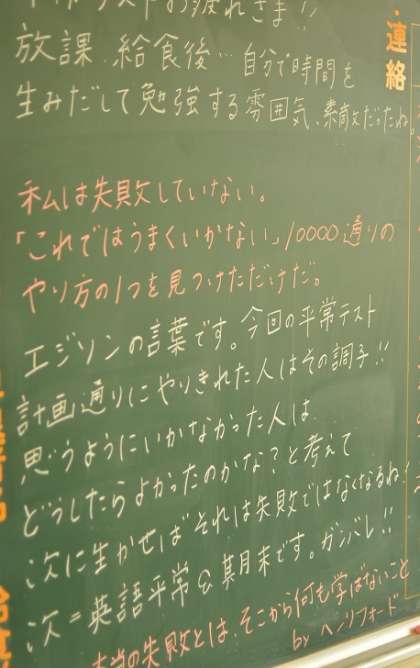 テストお疲れさま!!
放課、給食後…自分で時間を
生みだして勉強する雰囲気、素敵だったね
私は失敗していない。
「これではうまくいかない」10000通りの
やり方の1つを見つけただけだ。
エジソンの言葉です。今回の平常テスト
計画通りにやりきれた人はその調子!!
思うようにいかなかった人は
どうしたらよかったのかな?と考えて
次に生かせばそれは失敗ではなくなるね!
次=英語平常&期末です。ガンバレ!!
本当の失敗とは、そこから何も学ばないこと
by ヘンリフォード
連絡